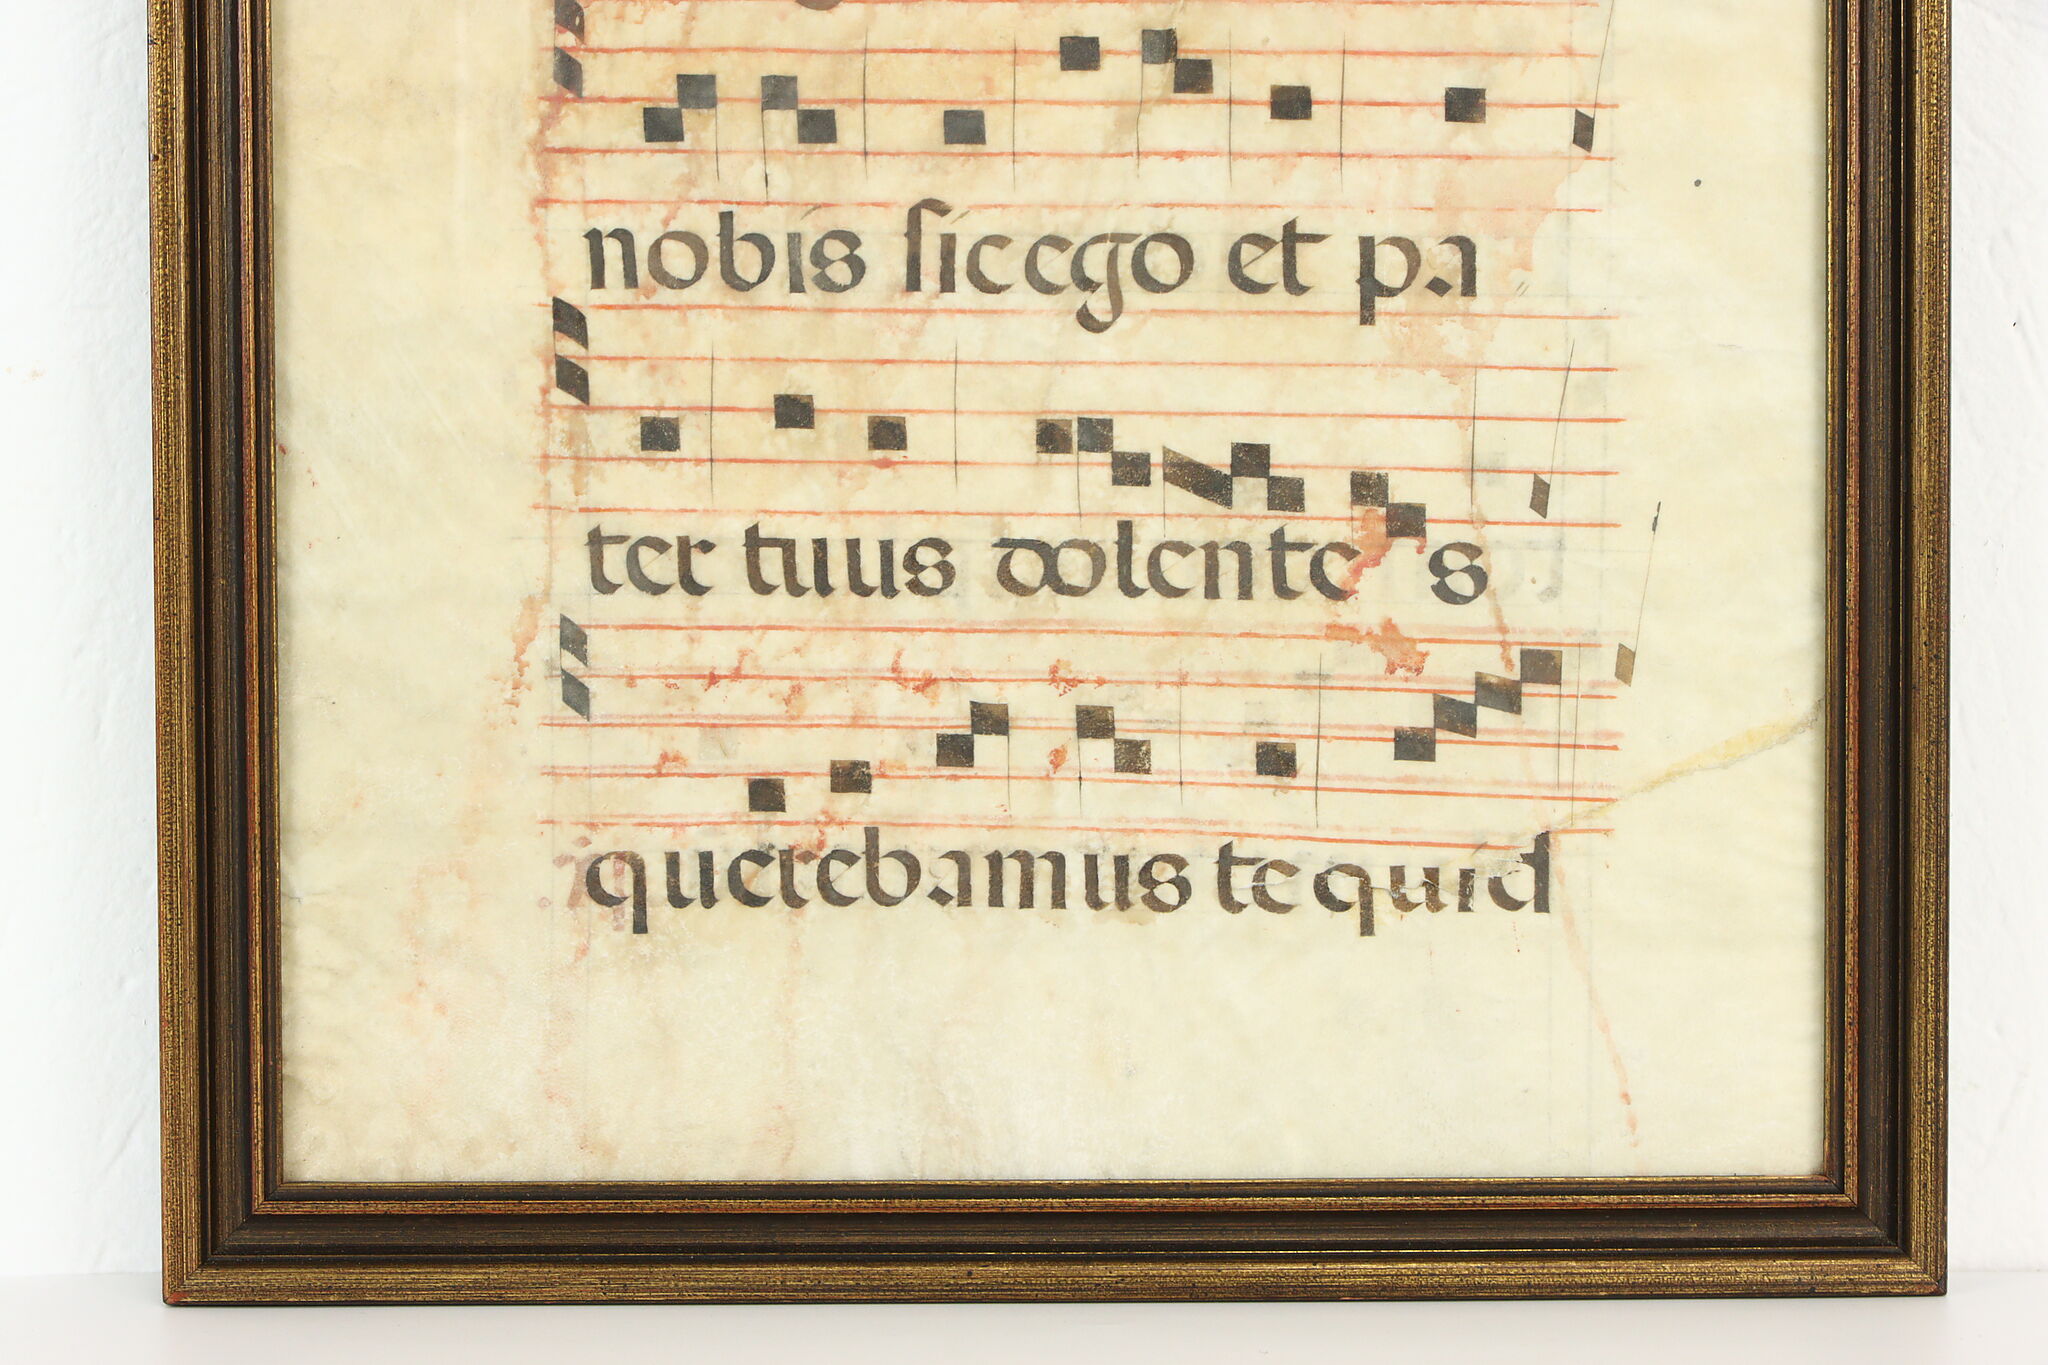 nobis sic ego et pa
ter tuus dolente s
querebamus te quid